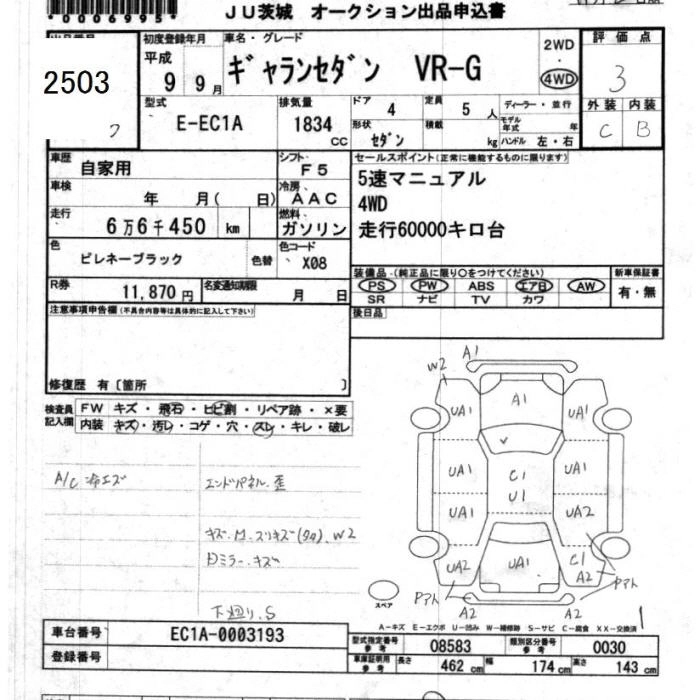 *0006995*
JU茨城 オークション出品申込書
2503
初度登録年月
平成 9年 9月
車名・グレード
ギャランセダン VR-G
2WD
4WD
評価点
3
外装 内装
C B
型式
E-EC1A
排気量
1834 CC
ドア 4
定員 5人
形状 セダン
積載 kg
ディーラー・並行
モデル年式 年
ハンドル 左・右
車歴 自家用
シフト F5
車検 年 月( 日)
冷房 AAC
走行 6万6千450 km
燃料 ガソリン
色 ピレネーブラック
色替
色コード X08
R券 11,870円
名変通知期限 月 日
セールスポイント(正常に機能するものに限ります)
5速マニュアル
4WD
走行60000キロ台
装備品 (純正品に限り○をつけてください)
PS PW ABS エアB AW
SR ナビ TV カワ
新車保証書
有・無
後日品
注意事項申告欄(不具合内容等は具体的に記入して下さい)
修復歴 有〔箇所 〕
検査員記入欄
FW キズ・飛石・ヒビ割・リペア跡・×要
内装 キズ・汚レ・コゲ・穴・スレ・キレ・破レ
A/C 冷エズ
エンドパネル歪
キズ・M・スリキズ(タタ)、W2
Dミラーキズ
下廻り、S
A1
W2
A1
UA1 UA1
UA1 C1 UA1
U1
UA1 UA2
UA2 UA1 C1
A2
Pアト Pアト
A2 A2
スペア
A-キズ E-エクボ U-凹み W-補修跡 S-サビ C-腐食 XX-交換済
車台番号 EC1A-0003193
登録番号
型式指定番号 参考 08583
類別区分番号 参考 0030
車庫証明用 参考 長さ 462 cm 幅 174 cm 高さ 143 cm